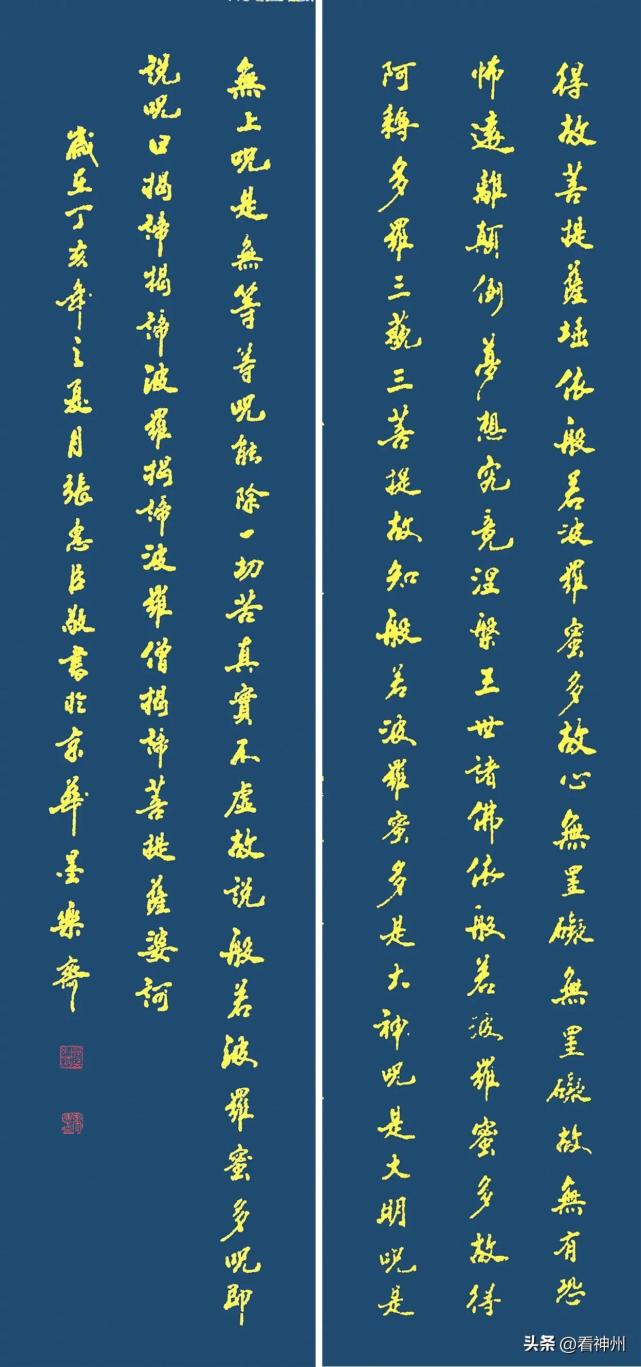 得故菩提薩埵依般若波羅蜜多故心無罣礙無罣礙故無有恐
怖遠離顛倒夢想究竟涅槃三世諸佛依般若波羅蜜多故得
阿耨多羅三藐三菩提故知般若波羅蜜多是大神呪是大明呪是
無上呪是無等等呪能除一切苦真實不虛故說般若波羅蜜多呪即
說呪曰揭諦揭諦波羅揭諦波羅僧揭諦菩提薩婆訶
歲在丁亥年之夏月張惠臣敬書於京華墨樂齋
头条 @看神州